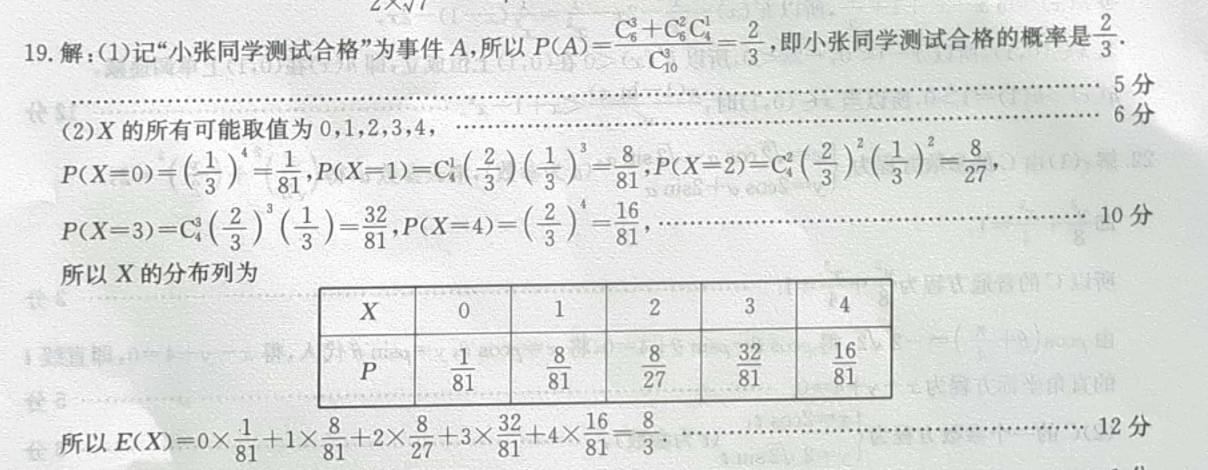 19. 解:(1)记“小张同学测试合格”为事件 A,所以 P(A)=\frac{C_6^3+C_6^2C_4^1}{C_{10}^3}=\frac{2}{3},即小张同学测试合格的概率是\frac{2}{3}.
5 分
(2)X 的所有可能取值为 0,1,2,3,4, 6 分
P(X=0)=(\frac{1}{3})^4=\frac{1}{81},P(X=1)=C_4^1(\frac{2}{3})(\frac{1}{3})^3=\frac{8}{81},P(X=2)=C_4^2(\frac{2}{3})^2(\frac{1}{3})^2=\frac{8}{27},
P(X=3)=C_4^3(\frac{2}{3})^3(\frac{1}{3})=\frac{32}{81},P(X=4)=(\frac{2}{3})^4=\frac{16}{81}, 10 分
所以 X 的分布列为
X 0 1 2 3 4
P \frac{1}{81} \frac{8}{81} \frac{8}{27} \frac{32}{81} \frac{16}{81}
所以 E(X)=0×\frac{1}{81}+1×\frac{8}{81}+2×\frac{8}{27}+3×\frac{32}{81}+4×\frac{16}{81}=\frac{8}{3}. 12 分